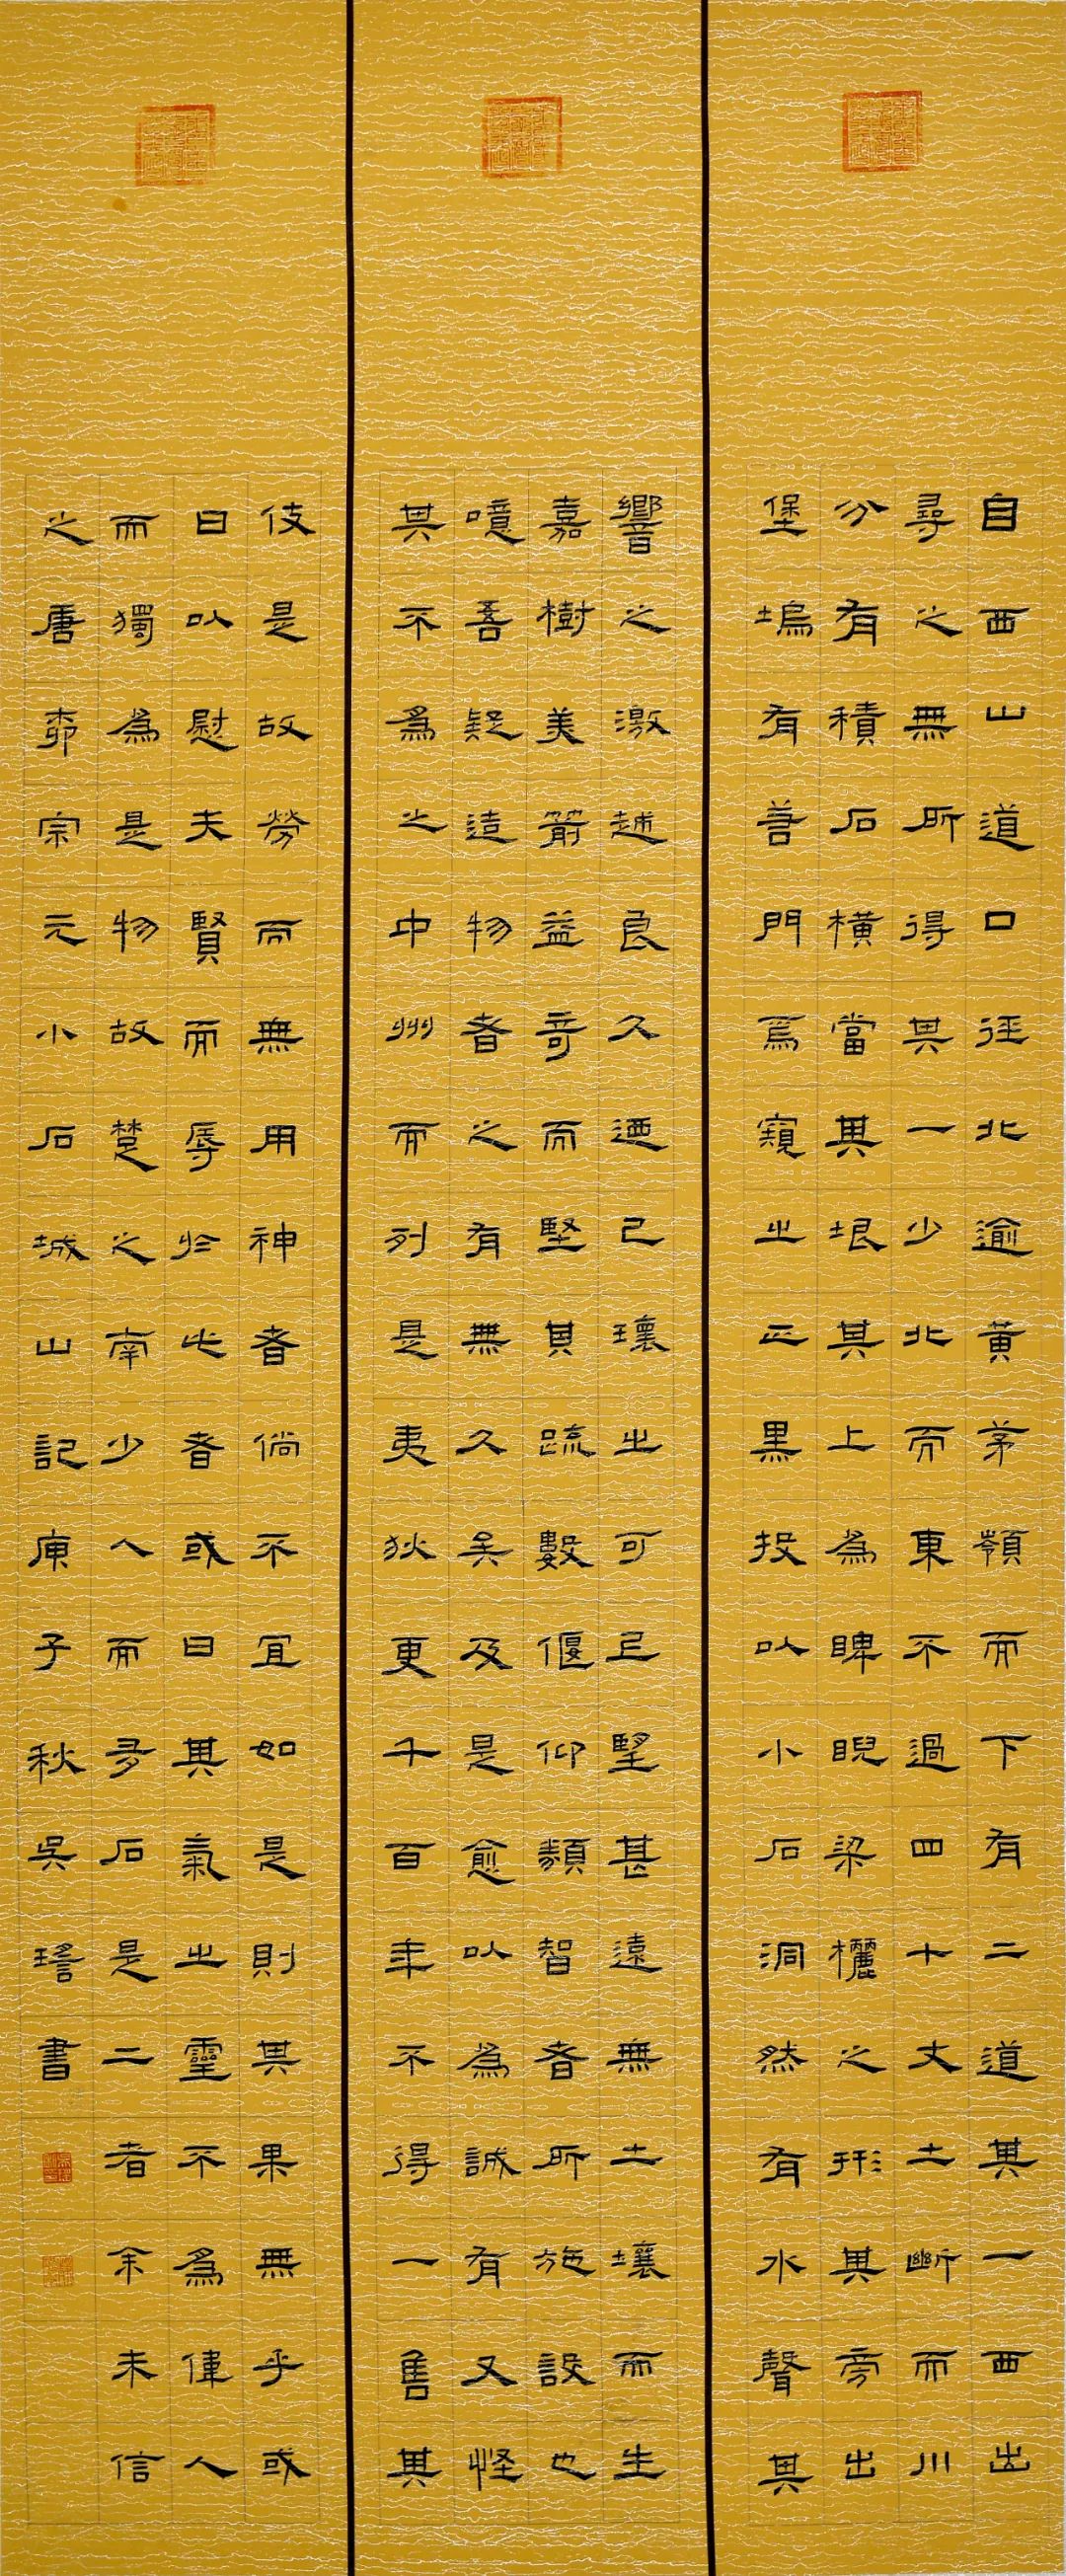 自西山道口徑北逾黃茅嶺而下有二道其一西出
尋之無所得其一少北而東不過四十丈土斷而川
分有積石橫當其垠其上為睥睨梁欐之形其旁出
堡塢有善門焉窺之正黑投以小石洞然有水聲其
響之激越良久迺已環之可已望甚遠無土壤而生
嘉樹美箭益奇而堅其疏數偃仰類智者所施設也
噫吾疑造物者之有無久矣及是愈以為誠有又怪
其不為之中州而列是夷狄更千百年不得一售其
伎是故勞而無用神者倘不宜如是則其果無乎或
曰以慰夫賢而辱於此者或曰其氣之靈不為偉人
而獨為是物故楚之南少人而多石是二者余未信
之唐柳宗元小石城山記庚子秋吳書